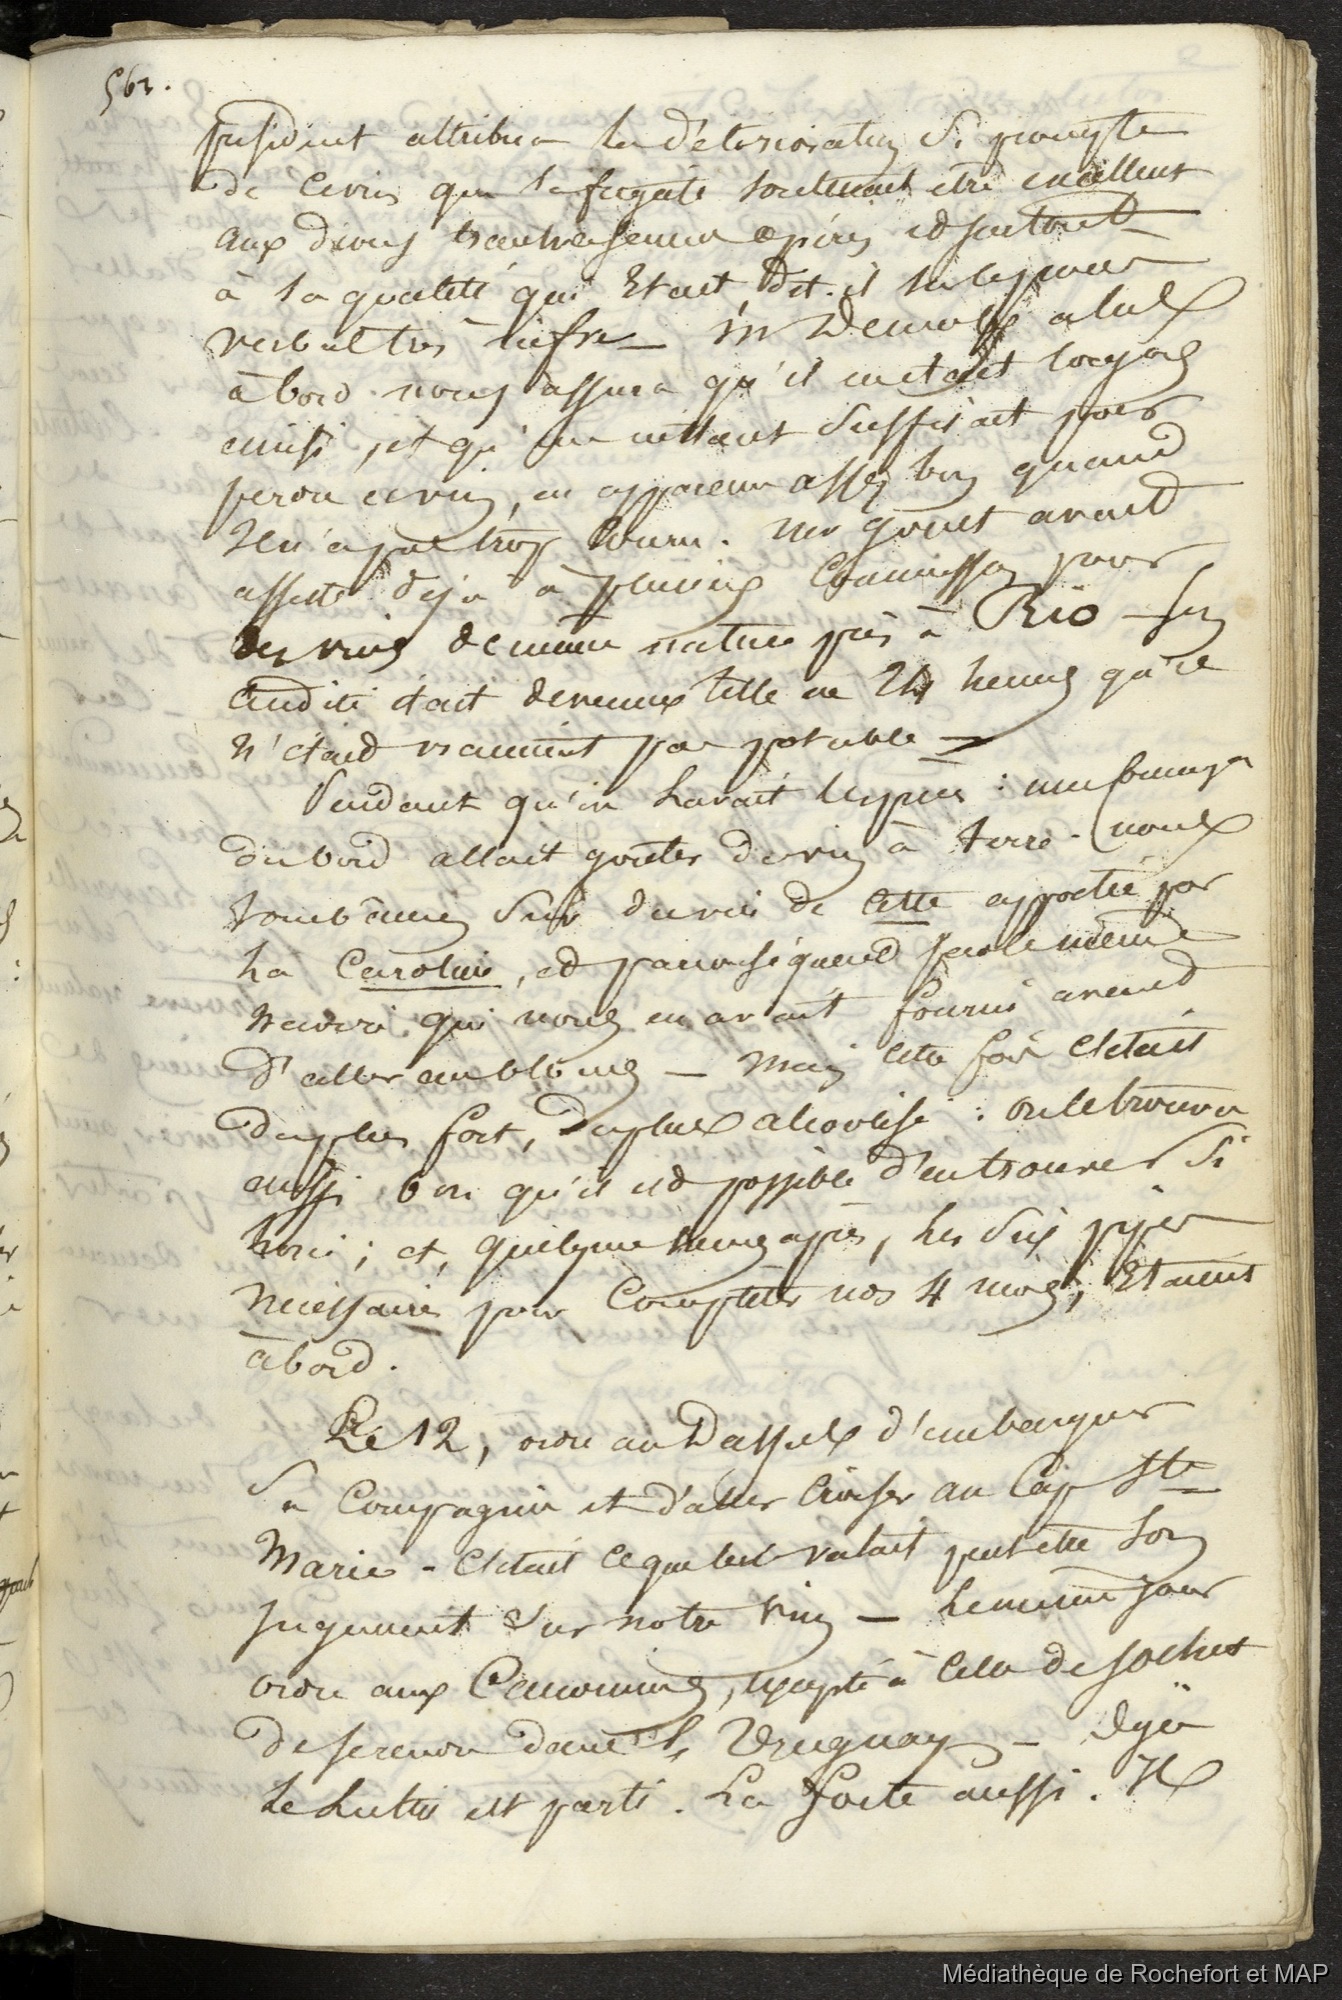 562.
président attribua la détérioration si prompte
de ce vin que la frégate soutenait être excellent
aux divers transvasemens opérés et surtout
à la qualité qui était, dit-il sur le procès
verbal très infre — Mr Demoly a lui
à bord nous assura qu'il en était toujours
ainsi, et qu'un instant suffisait pour
perdre ce vin, en apparence assez bon quand
il n'a pas trop couru. Mr avait
assisté déjà à plusieurs commissions pour
des vins de même nature pris à Rio – Son
acidité était devenue telle en 24 heures qu'il
n'était vraiment pas potable —
Pendant qu'on lavait les pièces : une comm.on
du bord allait goûter du vin à terre – nous
tombâmes sur du vin de Cette apporté par
la Caroline, et par conséquent par le même
navire qui nous en avait fourni avant
d'aller au blocus — Mais cette fois c'était
du plus fort, du plus alcoolisé : on le trouva
aussi bon qu'il est possible d'en trouver ici
; et, quelques heures après, les six pipes
nécessaires pour compléter nos 4 mois, étaient
à bord.
Le 12, ordre au Dassas d'embarquer
Sa compagnie et d'aller croiser au Cap Ste
Marie - C'était ce que lui valait peut être son
jugement sur notre vin — Le même jour
ordre aux Canonnières, excepté à celle de
de se rendre dans l'Uruguay – déjà
Le Lutin est parti. La Forte aussi. Il